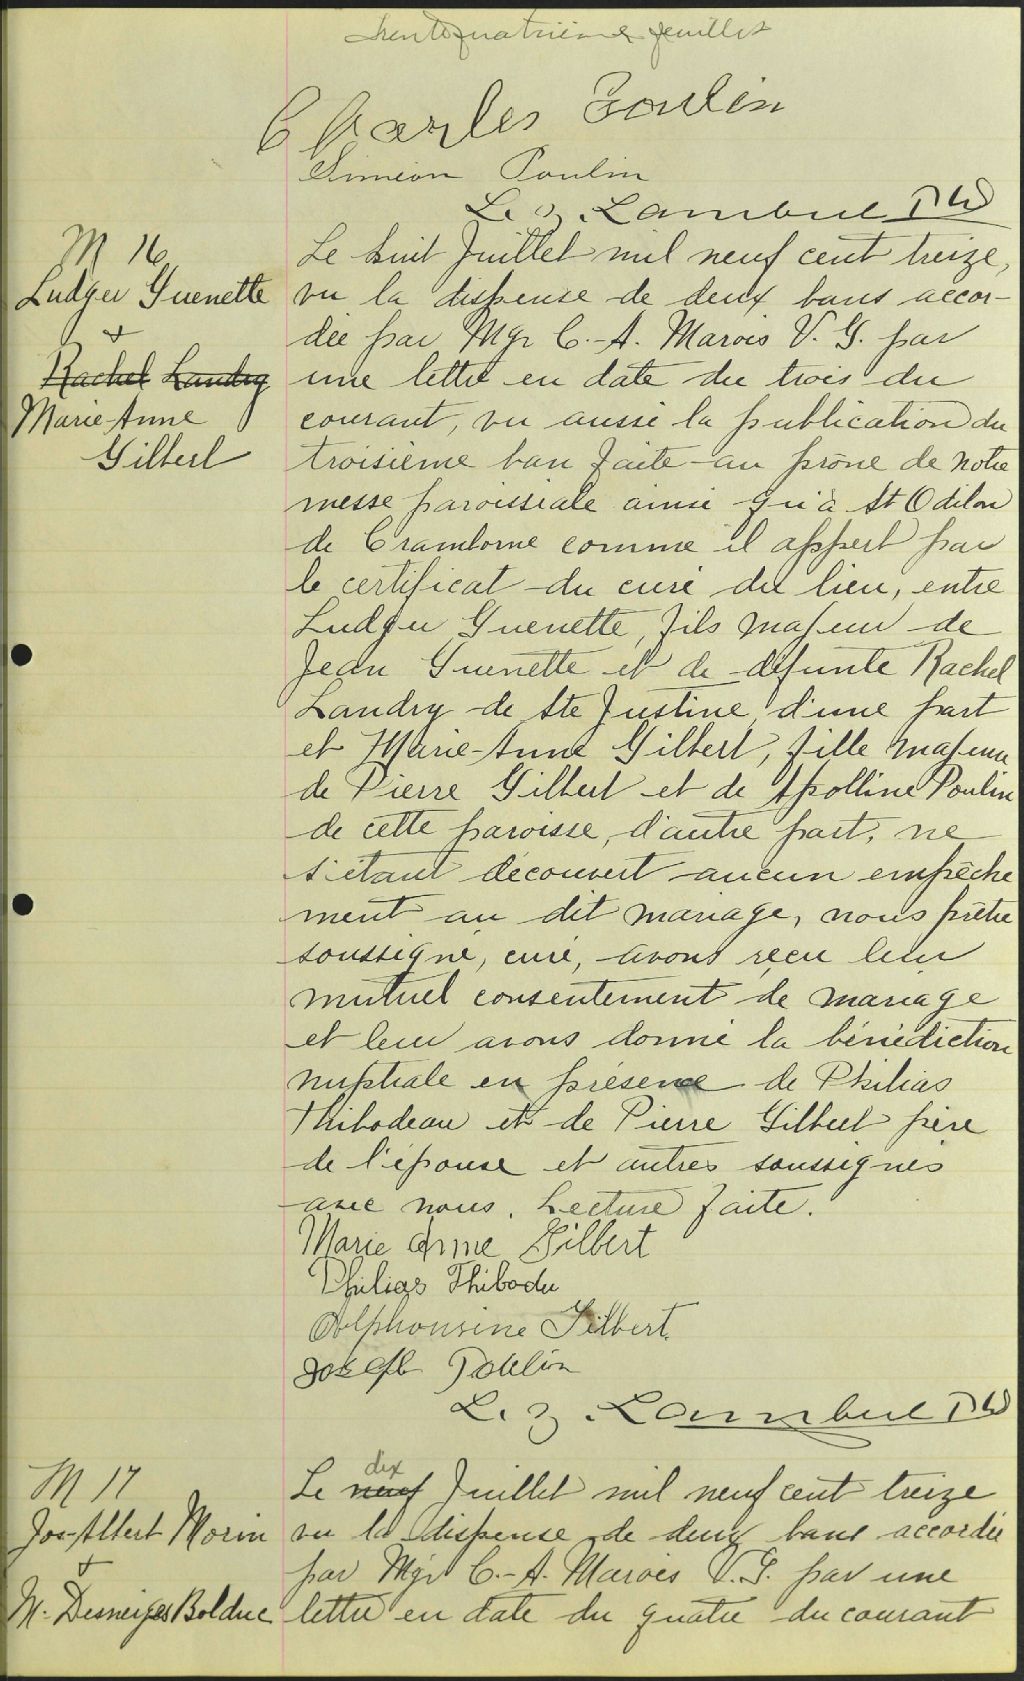 trente quatrième feuillet
Charles Poulin
Siméon Poulin
L. Z. Lambert Ptre
M 16
Ludger Guenette
+
Rachel Landry
Marie-Anne
Gilbert
Le huit Juillet mil neuf cent treize,
vu la dispense de deux bans accor-
dée par Mgr C.-A. Marois V. G. par
une lettre en date du trois du
courant, vu aussi la publication du
troisième ban faite au prône de notre
messe paroissiale ainsi qu'à St Odilon
de Cranborne comme il appert par
le certificat du curé du lieu, entre
Ludger Guenette, fils majeur de
Jean Guenette et de défunte Rachel
Landry de Ste Justine, d'une part
et Marie-Anne Gilbert, fille majeure
de Pierre Gilbert et de Apolline Poulin
de cette paroisse, d'autre part, ne
s'étant découvert aucun empêche
ment au dit mariage, nous prêtre
soussigné, curé, avons reçu leur
mutuel consentement de mariage
et leur avons donné la bénédiction
nuptiale en présence de Philias
Thibodeau et de Pierre Gilbert père
de l'épouse et autres soussignés
avec nous. Lecture faite.
Marie Anne Gilbert
Philias Thibodu
Alphonsine Gilbert
Joseph Poulin
L. Z. Lambert Ptre
M 17
Jos-Albert Morin
+
M. Desneiges Bolduc
Le neuf dix Juillet mil neuf cent treize
vu la dispense de deux bans accordée
par Mgr C.-A. Marois V. G. par une
lettre en date du quatre du courant